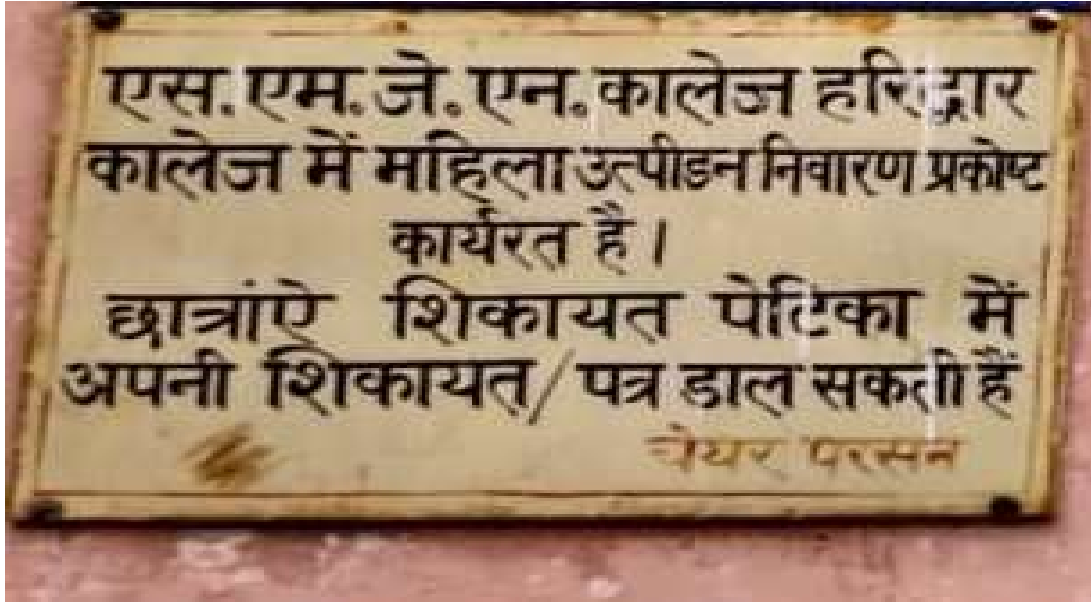 एस.एम.जे.एन.कालेज हरिद्वार
कालेज में महिला उत्पीडन निवारण प्रकोष्ट
कार्यरत है।
छात्रांऐ शिकायत पेटिका में
अपनी शिकायत/पत्र डाल सकती हैं
चेयर परसन